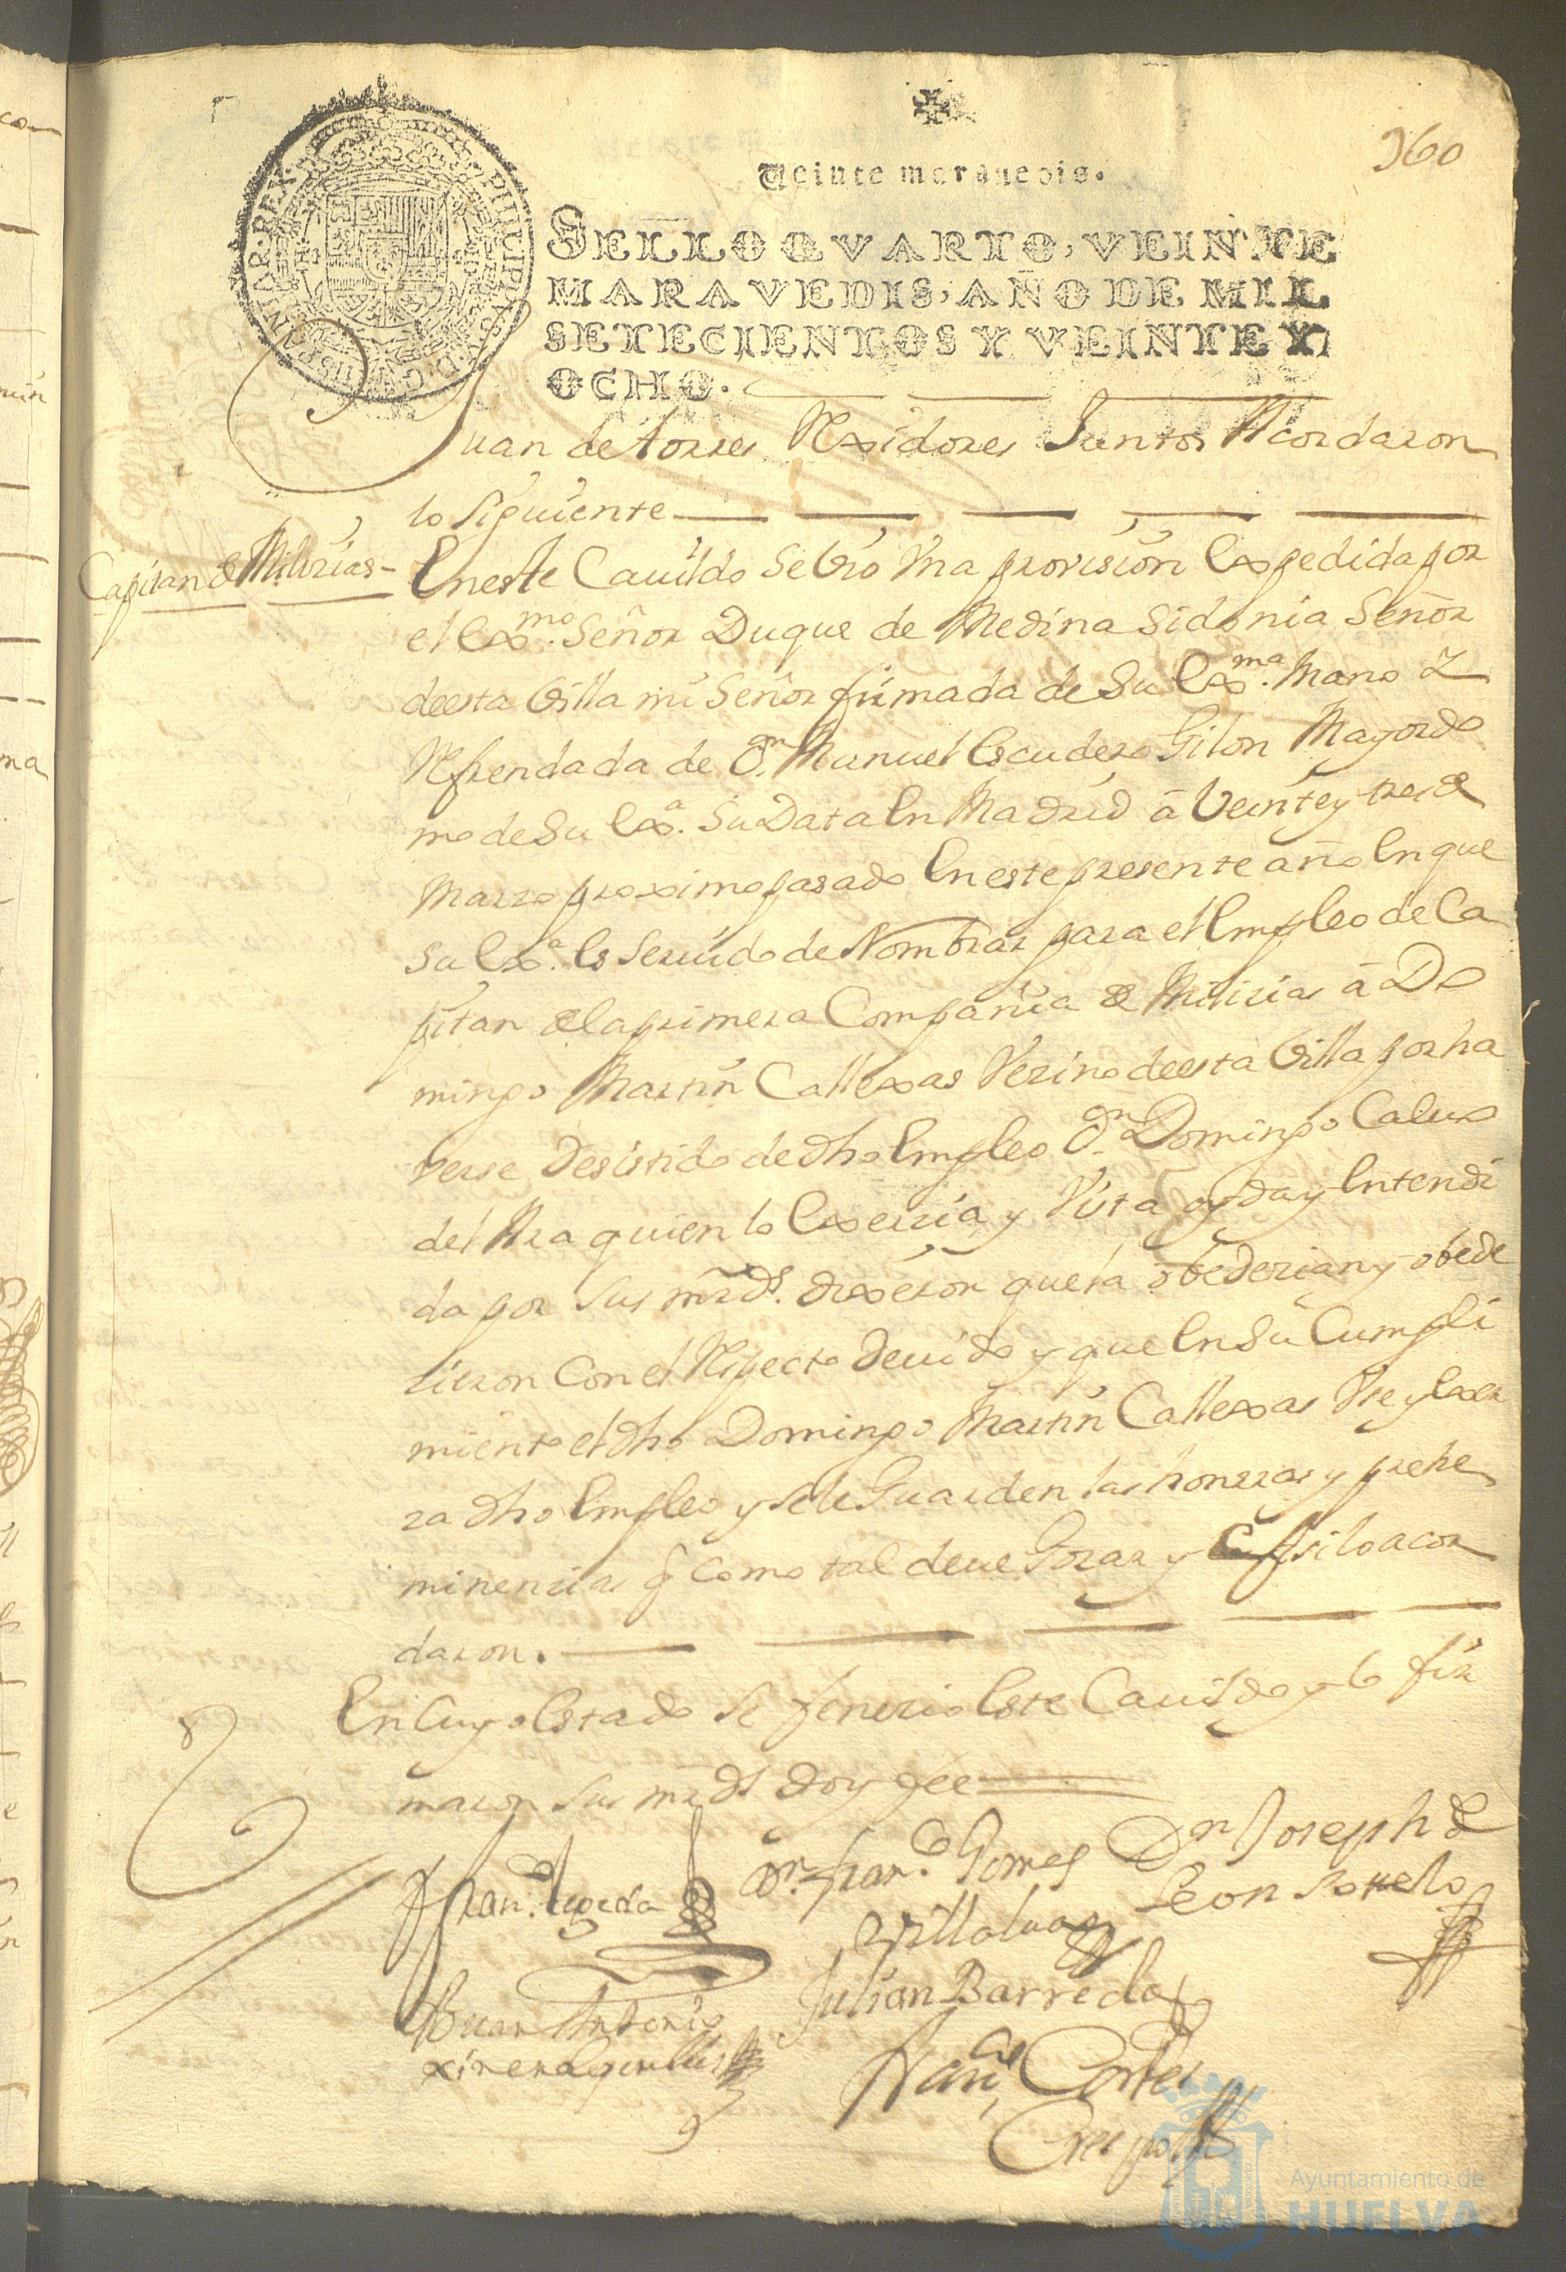 360
Veinte maravedis.
SELLO QVARTO, VEINTE
MARAVEDIS, AÑO DE MIL
SETECIENTOS Y VEINTE Y
OCHO.
Juan de torres Rexidores Juntos Acordaron
lo siguiente
Capitan de Milizias
En este Cauildo se bio Vna provision Expedida por
el Exmo. Señor Duque de Medina Sidonia Señor
deesta Villa mi Señor firmada de Su Exma. Mano Y
Refrendada de Dn. Manuel Escudero Gilon Mayordo
mo de Su Exa. Su Data En Madrid â Veintey tres de
Marzo proximo pasado En este presente año En que
su Exa. Es Seruido de Nombrar para el Empleo de Ca
pitan de la primera Compañia de Milizias â Do
mingo Martin Callexas Vezino deesta Villa por ha
verse Desistido de dho Empleo Dn. Domingo Caluo
del Ara quien lo Exerzia y Vista oyda y Entendi
da por sus mrds. dixeron que la obedezian y obede
zieron Con el Respecto deuido y que En Su Cumpli
miento el dho Domingo Martin Callexas Vse y Exer
za dho Empleo y se le Guarden las honrras y prehe
minenzias q Como tal deue Gozar y Assi lo acor
daron.
En Cuyo Estado se fenezio Este Cauildo y lo fir
maron sus mrds doy fee
Fran.co Cepeda
Dn. Fran.co Gomes
Villalua
Dn Joseph de
Leon Sotelo
Juan Antonio
Julian Barreda
Franco Cortes
Crespo
Ayuntamiento de
HUELVA